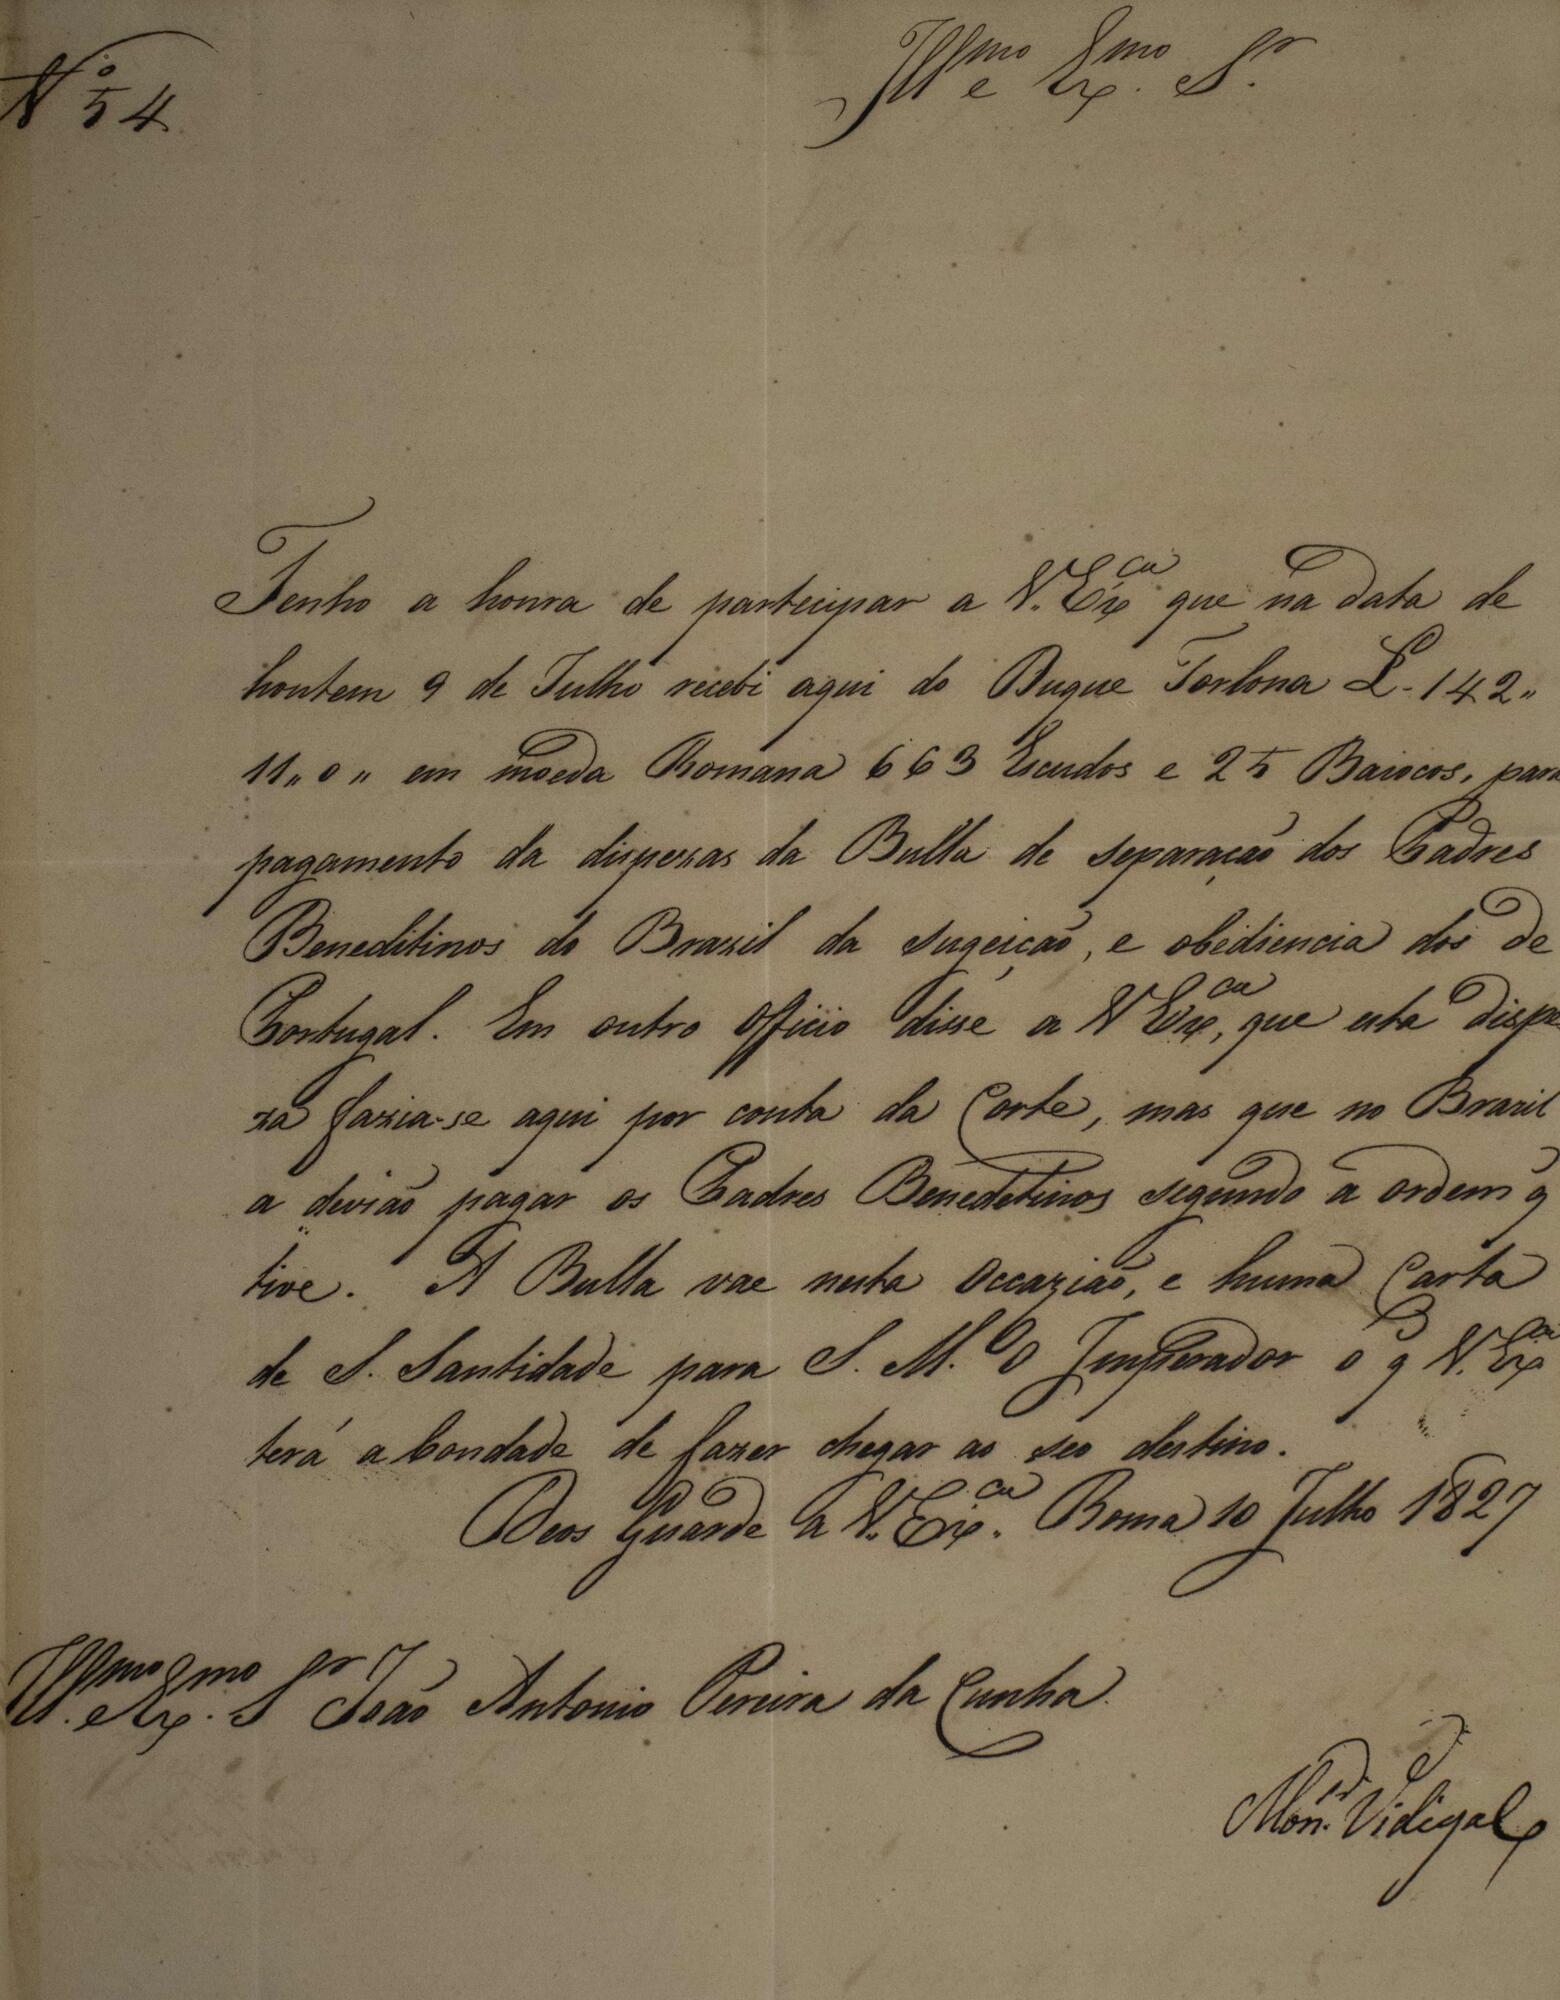 Nº 54
Illmo e Exmo Sr.
Tenho a honra de participar a V. Exca que na data de
hontem 9 de Julho recebi aqui do Duque Torlona L. 142„
11„ 0„ em moeda Romana 663 Escudos e 25 Baiocos, para
pagamento da dispezas da Bulla de separação dos Padres
Beneditinos do Brazil da sugeição, e obediencia dos de
Portugal. Em outro Officio disse a V Exca, que esta dispe
za fazia-se aqui por conta da Corte, mas que no Brazil
a devião pagar os Padres Beneditinos segundo a ordem q
tive. A Bulla vae nesta occazião, e huma Carta
de S. Santidade para S. M. O Imperador o q V. Exca
terá a bondade de fazer chegar ao seo destino.
Deos Guarde a V. Exca. Roma 10 Julho 1827
Illmo e Exmo. Sr João Antonio Pereira da Cunha.
Monsr. Vidigal